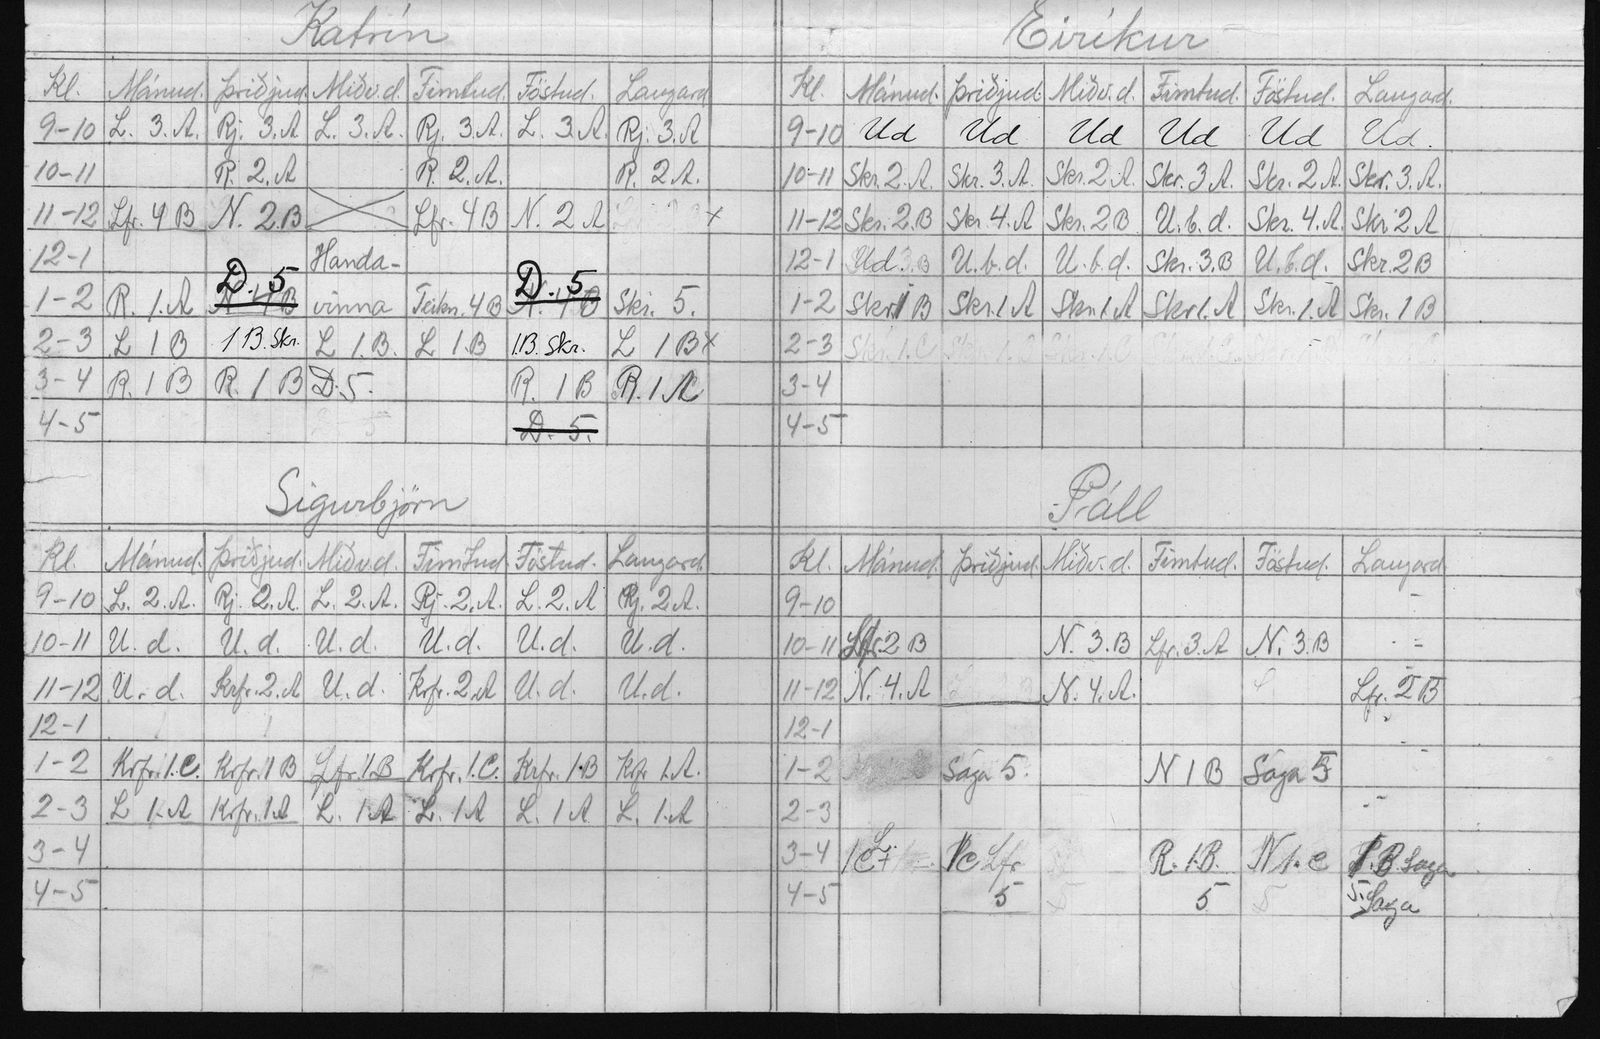 Katrín
Kl. Mánud. Þriðjud. Miðv.d. Fimtud. Föstud. Laugard
9-10 L. 3.A. Rj. 3.A L. 3.A. Rj. 3.A L. 3.A Rj. 3.A
10-11 R. 2.A R. 2.A. R. 2.A.
11-12 Lfr. 4B N. 2.B Lfr. 4B N. 2 A x
12-1 Handa-
D. 5 D. 5
1-2 R. 1.A vinna Teikn. 4B Skr. 5.
2-3 L 1B 1B. Skr. L 1.B. L 1.B 1.B. Skr. L 1Bx
3-4 R. 1B R. 1B D.5. R. 1B R. 1A
4-5 D. 5.
Eiríkur
Kl. Mánud. Þriðjud. Miðv.d. Fimtud. Föstud. Laugard.
9-10 Ud Ud Ud Ud Ud Ud.
10-11 Skr. 2.A Skr. 3.A. Skr. 2.A Skr. 3.A Skr. 2.A Skr. 3.A.
11-12 Skr. 2B Skr. 4.A Skr. 2B U.b.d. Skr. 4.A Skr 2A
12-1 Ud. 3.B U.b.d. U.b.d. Skr. 3.B U.b.d. Skr. 2B
1-2 Skr. 1B Skr. 1A Skr. 1.A Skr 1.A Skr. 1.A Skr. 1B
2-3 Skr. 1.C
3-4
4-5
Sigurbjörn
Kl. Mánud. Þriðjud. Miðv.d. Fimtud. Föstud. Laugard
9-10 L. 2.A. Rj. 2.A. L. 2.A. Rj. 2.A. L. 2.A Rj. 2A.
10-11 U.d. U.d. U.d. U.d. U.d. U.d.
11-12 U.d. Krfr. 2.A U.d. Krfr. 2.A U.d. U.d.
12-1
1-2 Krfr. 1.C. Krfr. 1B Lfr. 1.B Krfr. 1.C. Krfr. 1.B Krfr 1.A.
2-3 L 1.A Krfr. 1.A L. 1.A L. 1A L. 1A L. 1.A
3-4
4-5
Páll
Kl. Mánud. Þriðjud. Miðv.d. Fimtud. Föstud. Laugard
9-10
10-11 Lfr. 2B N. 3.B Lfr. 3.A N. 3.B
11-12 N. 4.A N. 4.A. Lfr. 2B
12-1
1-2 Saga 5. N 1B Saga 5
2-3
3-4 1C 1C Lfr R. 1.B. N 1.C 1.B. Saga
4-5 5 5 5. Saga